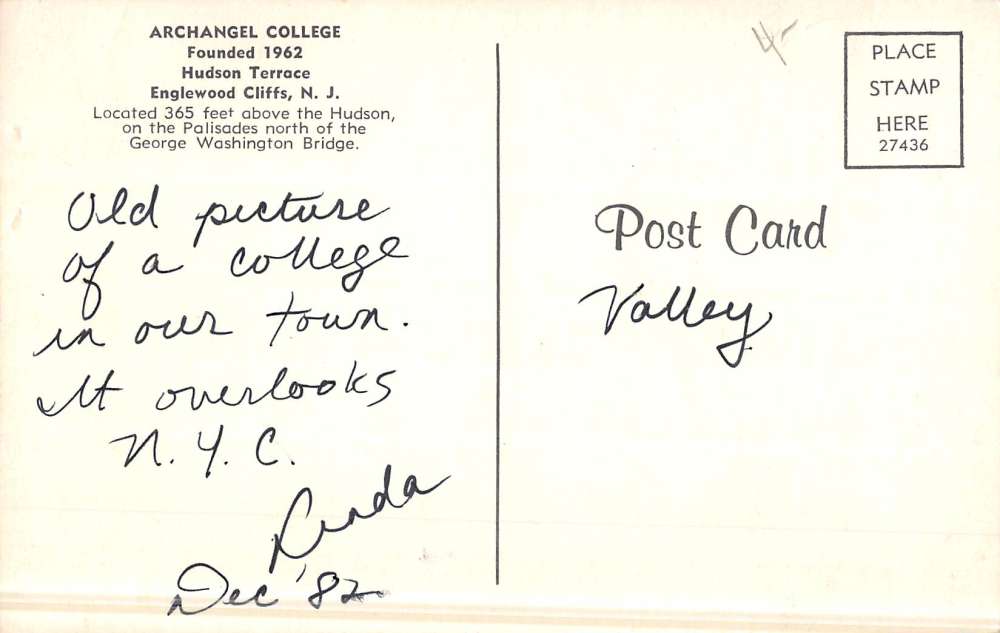 ARCHANGEL COLLEGE
Founded 1962
Hudson Terrace
Englewood Cliffs, N. J.
Located 365 feet above the Hudson,
on the Palisades north of the
George Washington Bridge.
Old picture
of a college
in our town.
It overlooks
N. Y. C.
Linda
Dec '82
4-
PLACE
STAMP
HERE
27436
Post Card
Valley